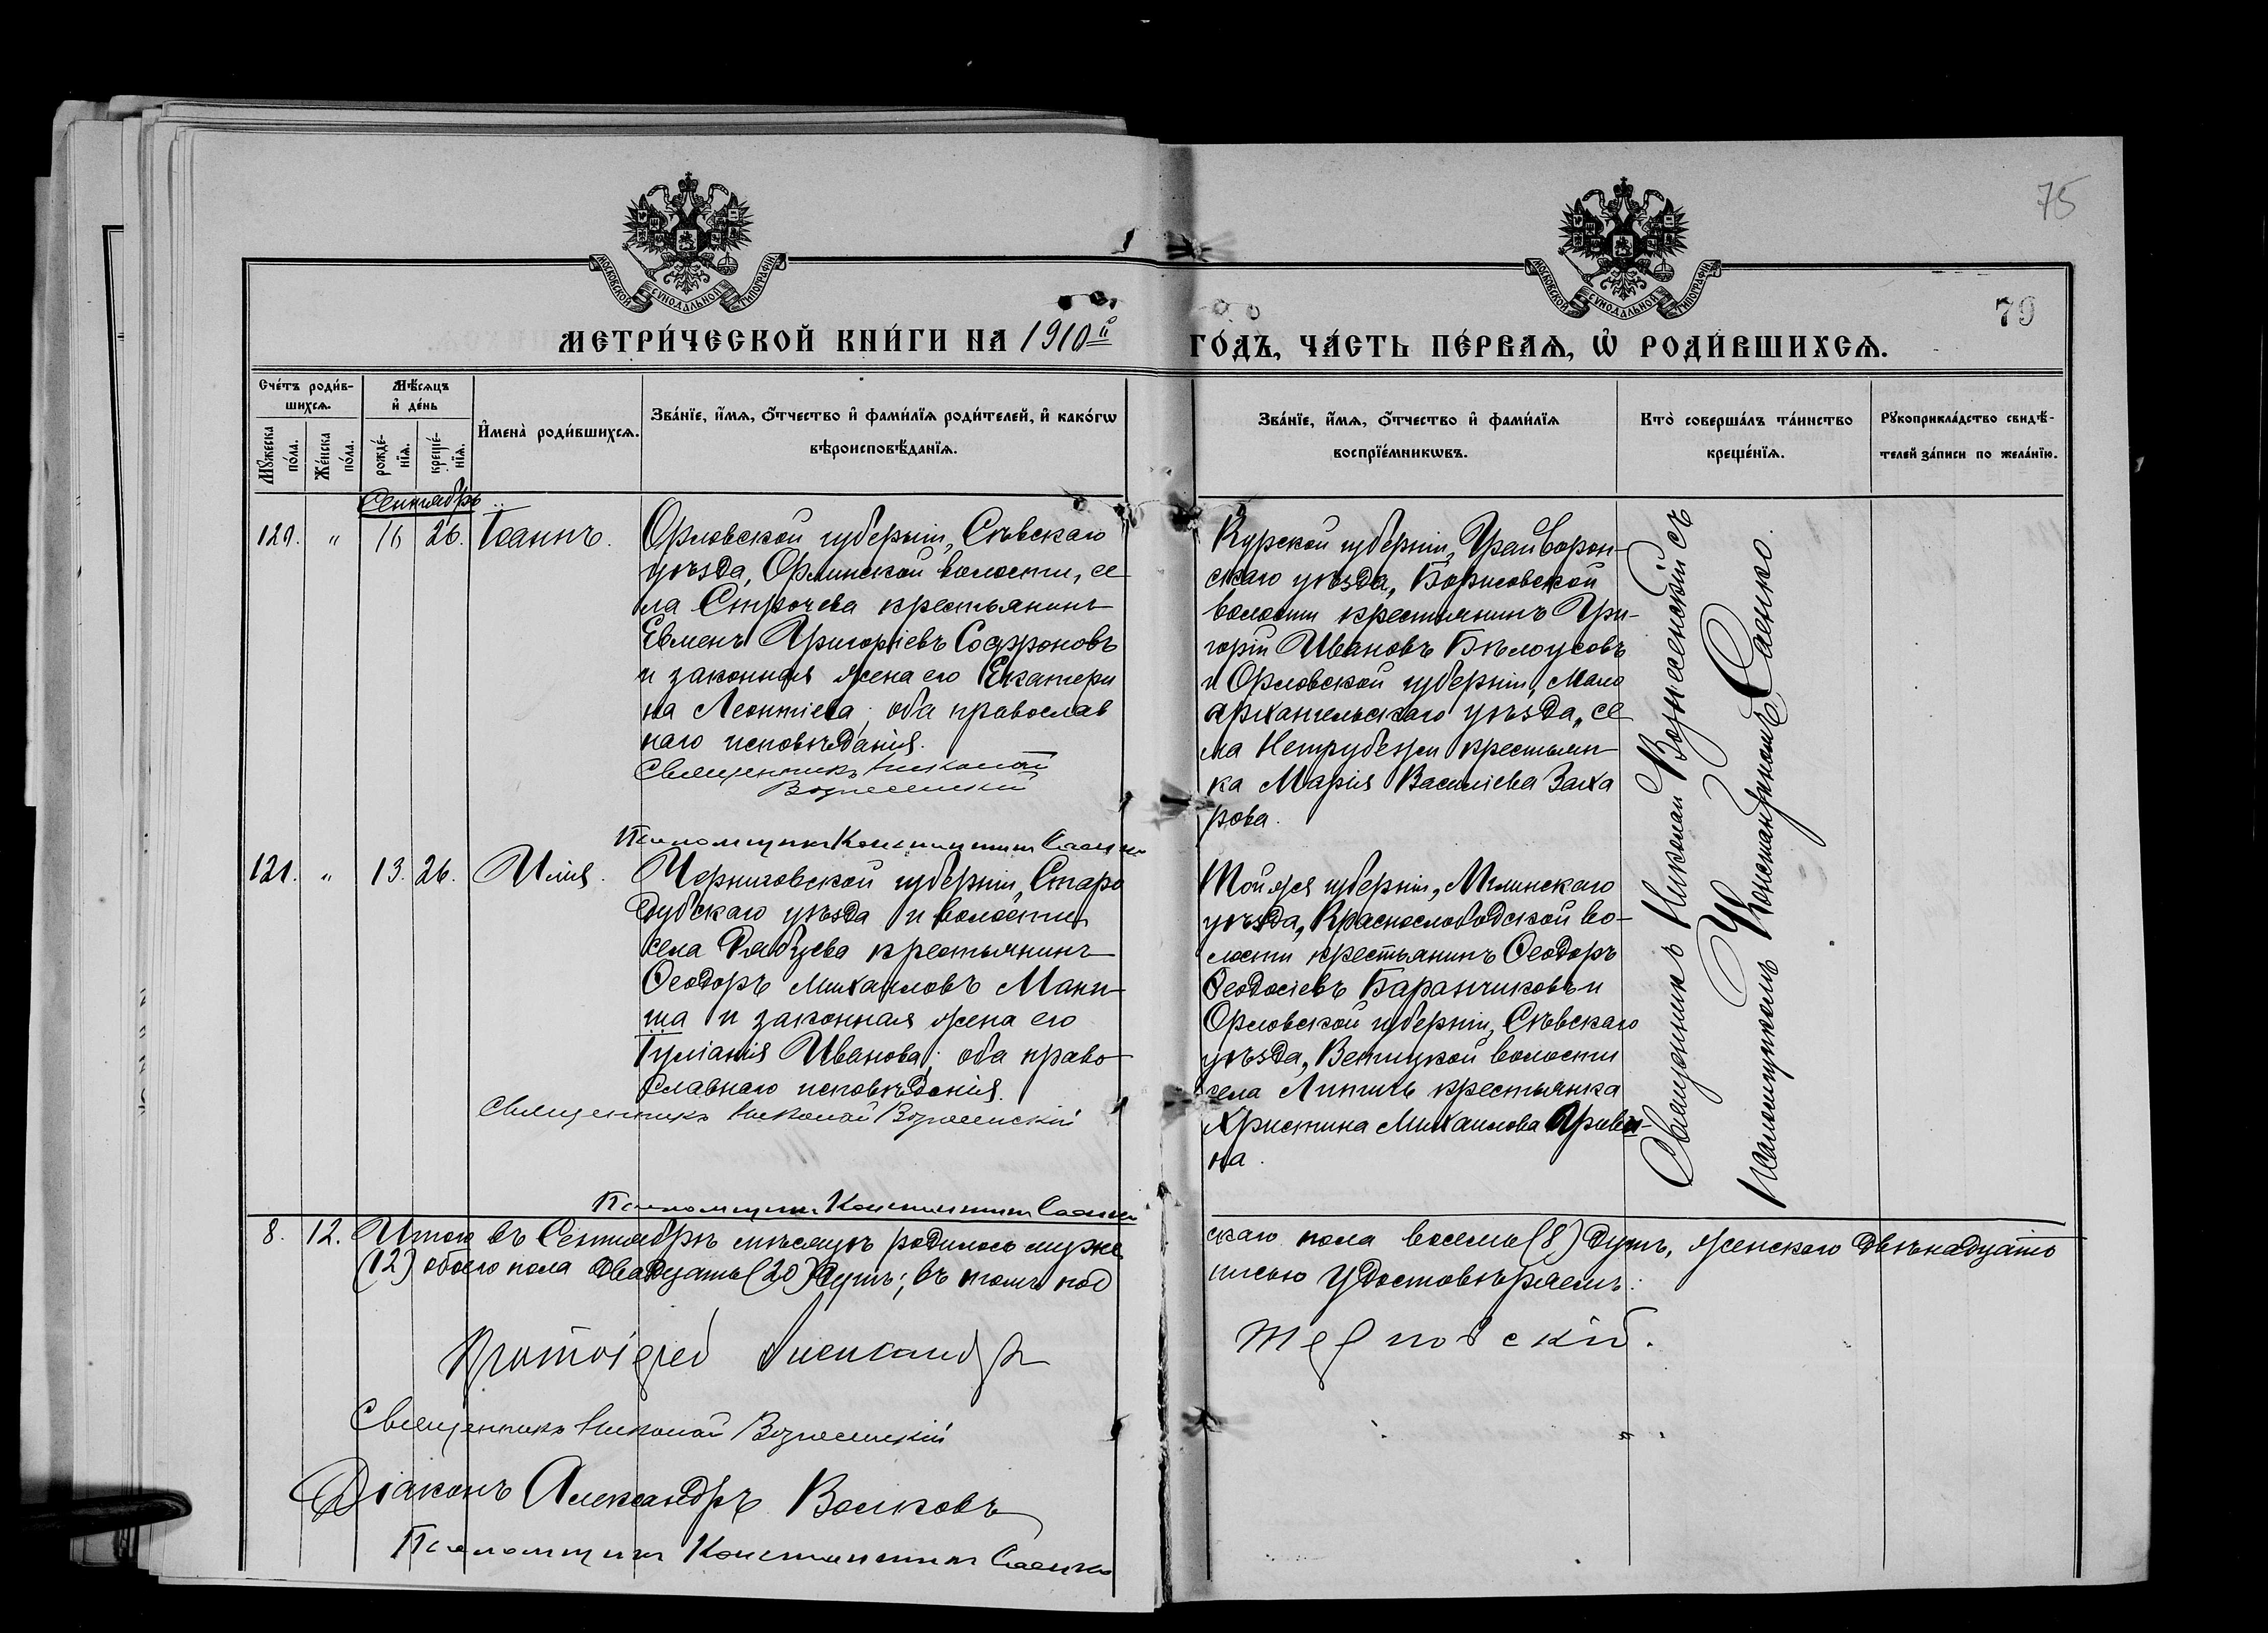 75
79
МОСКОВСКОЙ СѴНОДАЛЬНОЙ ТИПОГРАФІИ
МОСКОВСКОЙ СѴНОДАЛЬНОЙ ТИПОГРАФІИ
МЕТРИ́ЧЕСКОЙ КНИ́ГИ НА 1910й ГО́ДЪ, ЧА́СТЬ ПЕ́РВАѦ, Ѡ҆ РОДИ́ВШИХСѦ.
Сче́тъ роди́в-
шихсѧ.
Мѣ́сѧцъ
и҆ де́нь
Мꙋ́жеска
по́ла.
Же́нска
по́ла.
рожде́-
нїѧ.
креще́-
нїѧ.
И҆мена̀ роди́вшихсѧ.
Зва́нїе, и҆́мѧ, ѻ҆́тчество и҆ фами́лїѧ роди́телей, и҆ како́гѡ
вѣроисповѣ́данїѧ.
Зва́нїе, и҆́мѧ, ѻ҆́тчество и҆ фами́лїѧ
воспрїе́мникѡвъ.
Кто̀ соверша́лъ та́инство
креще́нїѧ.
Рꙋкоприкла́дство свидѣ́-
телей за́писи по жела́нїю.
Сентябрь
120. " 16 26. Іоаннъ.
Орловской губерніи, Сѣвскаго
уѣзда, Орлинской волости, се
ла Строчева крестьянинъ
Евменъ Григоріевъ Софроновъ
и законная жена его Екатери
на Леонтіева; оба православ
наго исповѣданія.
Священникъ Николай
Вознесенскій
Псаломщикъ Константинъ Саенко
Курской губерніи, Грайворон-
скаго уѣзда, Борисовской
волости крестьянинъ Гри-
горій Ивановъ Бѣлоусовъ
и Орловской губерніи, Мало
архангельскаго уѣзда, се
ла крестьян
ка Марія Василіева Заха
рова.
121. " 13. 26. Илія.
Черниговской губерніи, Старо
дубскаго уѣзда и волости
села крестьянинъ
Ѳеодоръ Михаиловъ Маки
ша и законная жена его
Іуліанія Иванова; оба право
славнаго исповѣданія.
Священникъ Николай Вознесенскій
Псаломщикъ Константинъ Саенко
Той же губерніи, Мглинскаго
уѣзда, Краснослободской во-
лости крестьянинъ Ѳеодоръ
Ѳеодосіевъ Баранчиковъ и
Орловской губерніи, Сѣвскаго
уѣзда, волости
села Литижъ крестьянка
Христина Михаилова
на.
Священникъ Николай Вознесенскій съ
Псаломщикомъ Константиномъ Саенко.
8. 12. Итого въ Сентябрѣ мѣсяцѣ родилось муже
скаго пола восемь (8) душъ, женскаго двѣнадцать
(12) обоего пола двадцать (20) душъ; въ томъ под
писью удостовѣряемъ:
Протоіерей Александръ Терновскій.
Священникъ Николай Вознесенскій
Діаконъ Александръ Волковъ
Псаломщикъ Константинъ Саенко